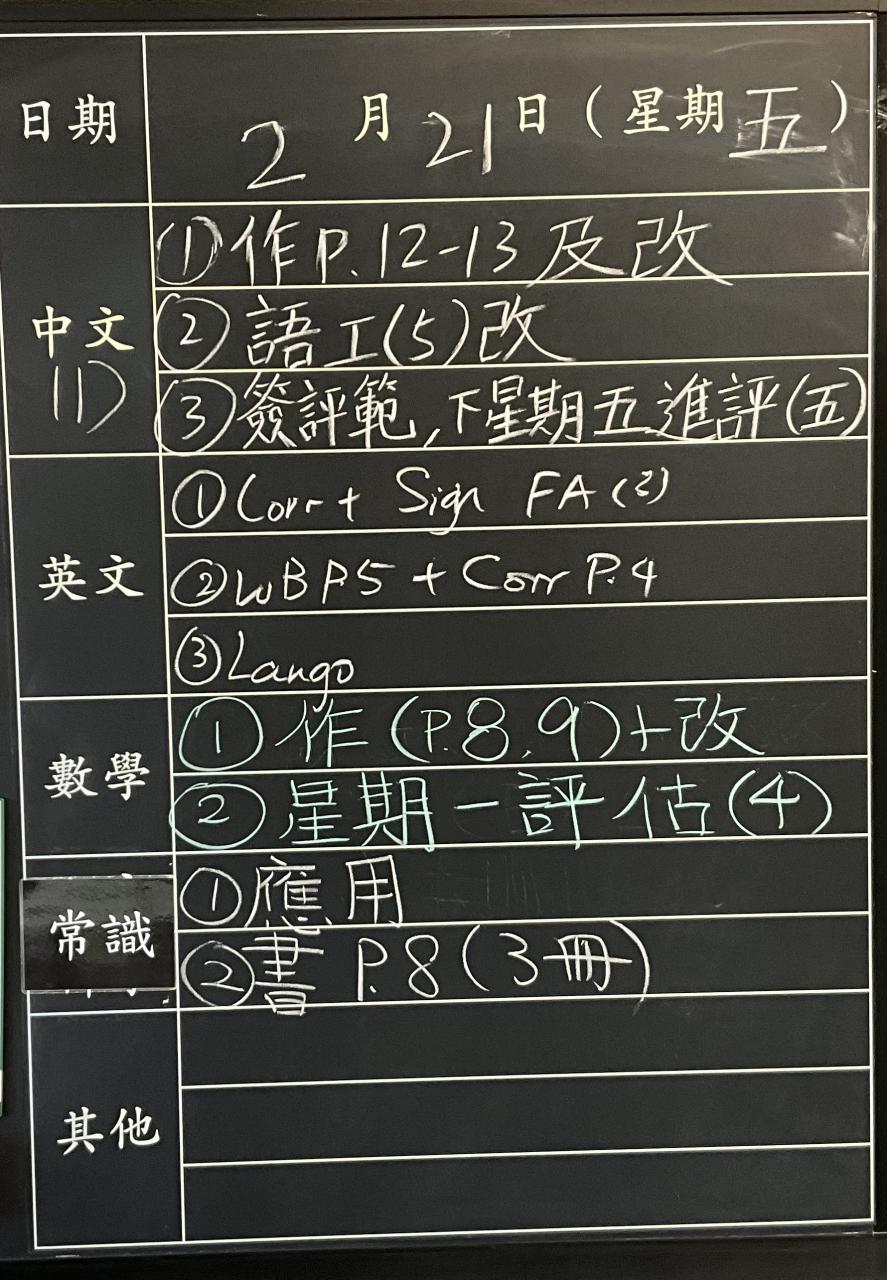 日期 2月21日(星期五)
①作P.12-13及改
中文 ②語工(5)改
11)
③簽評範,下星期五進評(五)
①Corr+ Sign FA(2)
英文 ②WB P.5 + Corr P.4
③Lango
數學 ①作(P.8,9)+改
②星期一評估(4)
常識 ①應用
②書 P.8(3冊)
其他